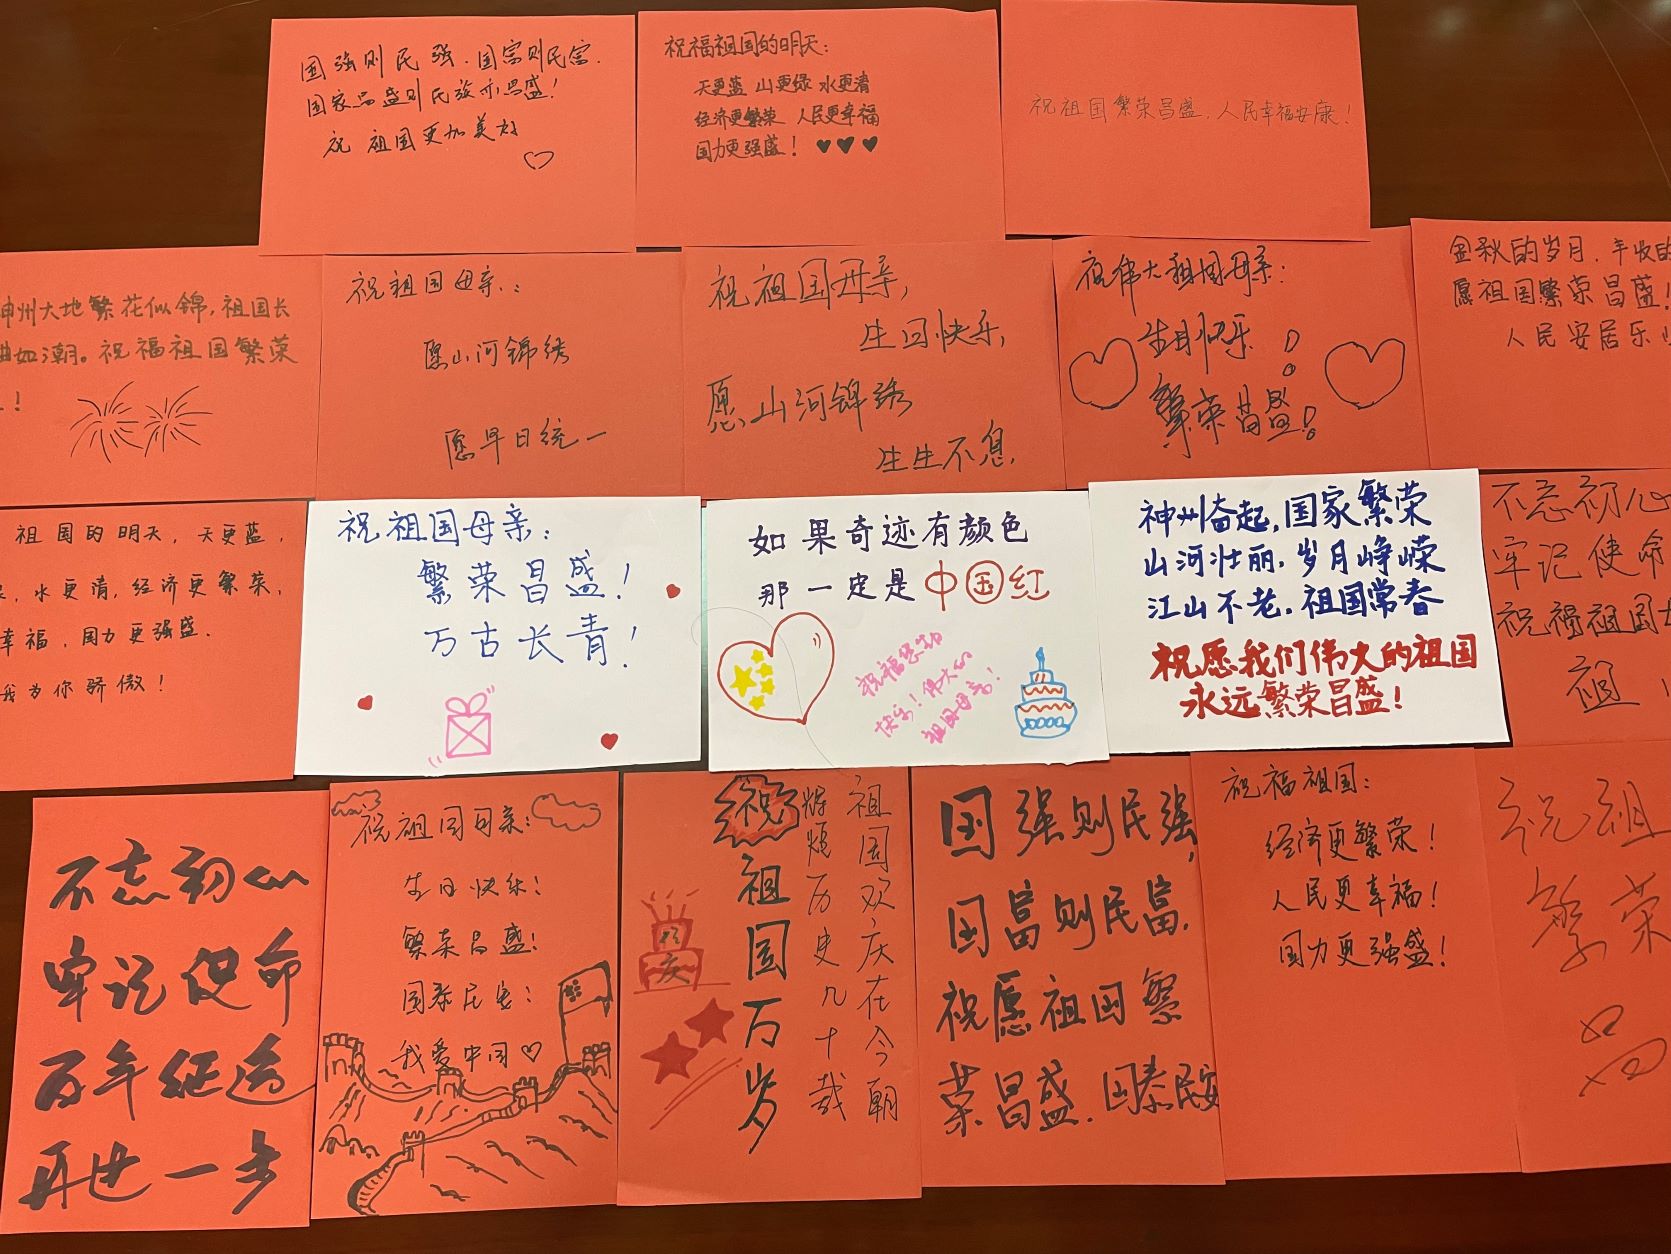 国强则民强.国富则民富.
国家昌盛则民族亦昌盛!
祝 祖国更加美好
祝福祖国的明天:
天更蓝 山更绿 水更清
经济更繁荣 人民更幸福
国力更强盛!
祝祖国繁荣昌盛,人民幸福安康!
神州大地繁花似锦,祖国长
曲如潮。祝福祖国繁荣
!
祝祖国母亲:
愿山河锦绣
愿早日统一
祝祖国母亲,
生日快乐,
愿山河锦绣
生生不息.
祝伟大祖国母亲:
生日快乐!
繁荣昌盛!
金秋的岁月,丰收的
愿祖国繁荣昌盛!
人民安居乐
祖国的明天,天更蓝,
水更清,经济更繁荣,
幸福,国力更强盛.
我为你骄傲!
祝祖国母亲:
繁荣昌盛!
万古长青!
如果奇迹有颜色
那一定是中国红
祝福您生日
快乐!伟大的
祖国母亲!
神州奋起,国家繁荣
山河壮丽,岁月峥嵘
江山不老,祖国常春
祝愿我们伟大的祖国
永远繁荣昌盛!
不忘初心
牢记使命
祝福祖国
祖
不忘初心
牢记使命
百年征途
再进一步
祝祖国母亲:
生日快乐!
繁荣昌盛!
国泰民安!
我爱中国
祖国欢庆在今朝
辉煌历史几十载
祝祖国万岁
庆
国强则民强,
国富则民富.
祝愿祖国繁
荣昌盛.国泰民安
祝福祖国:
经济更繁荣!
人民更幸福!
国力更强盛!
祝祖
繁荣
昌